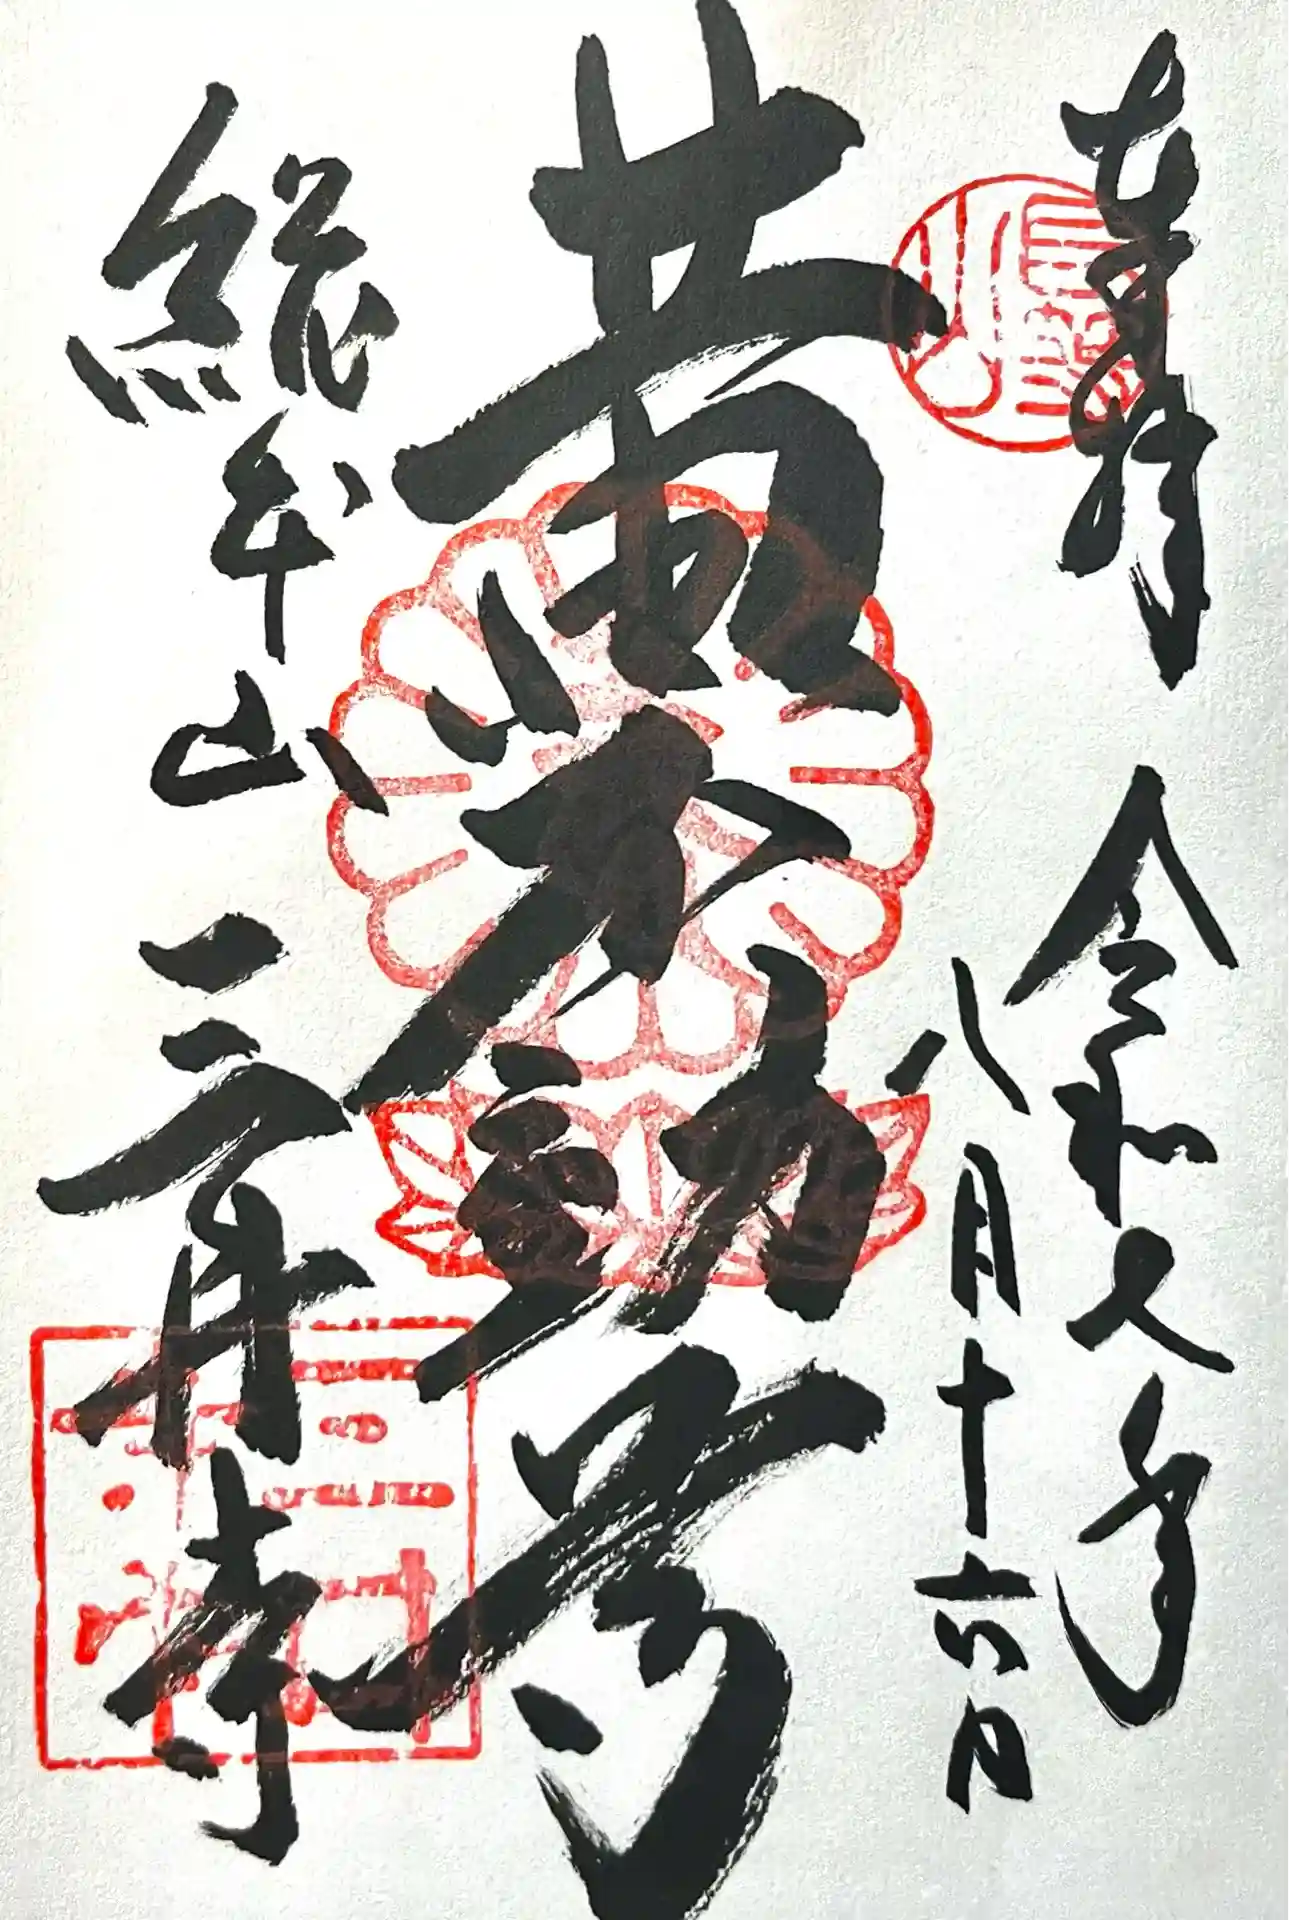 奉拝
令和七年
八月十六日
黄不動尊
総本山
三井寺